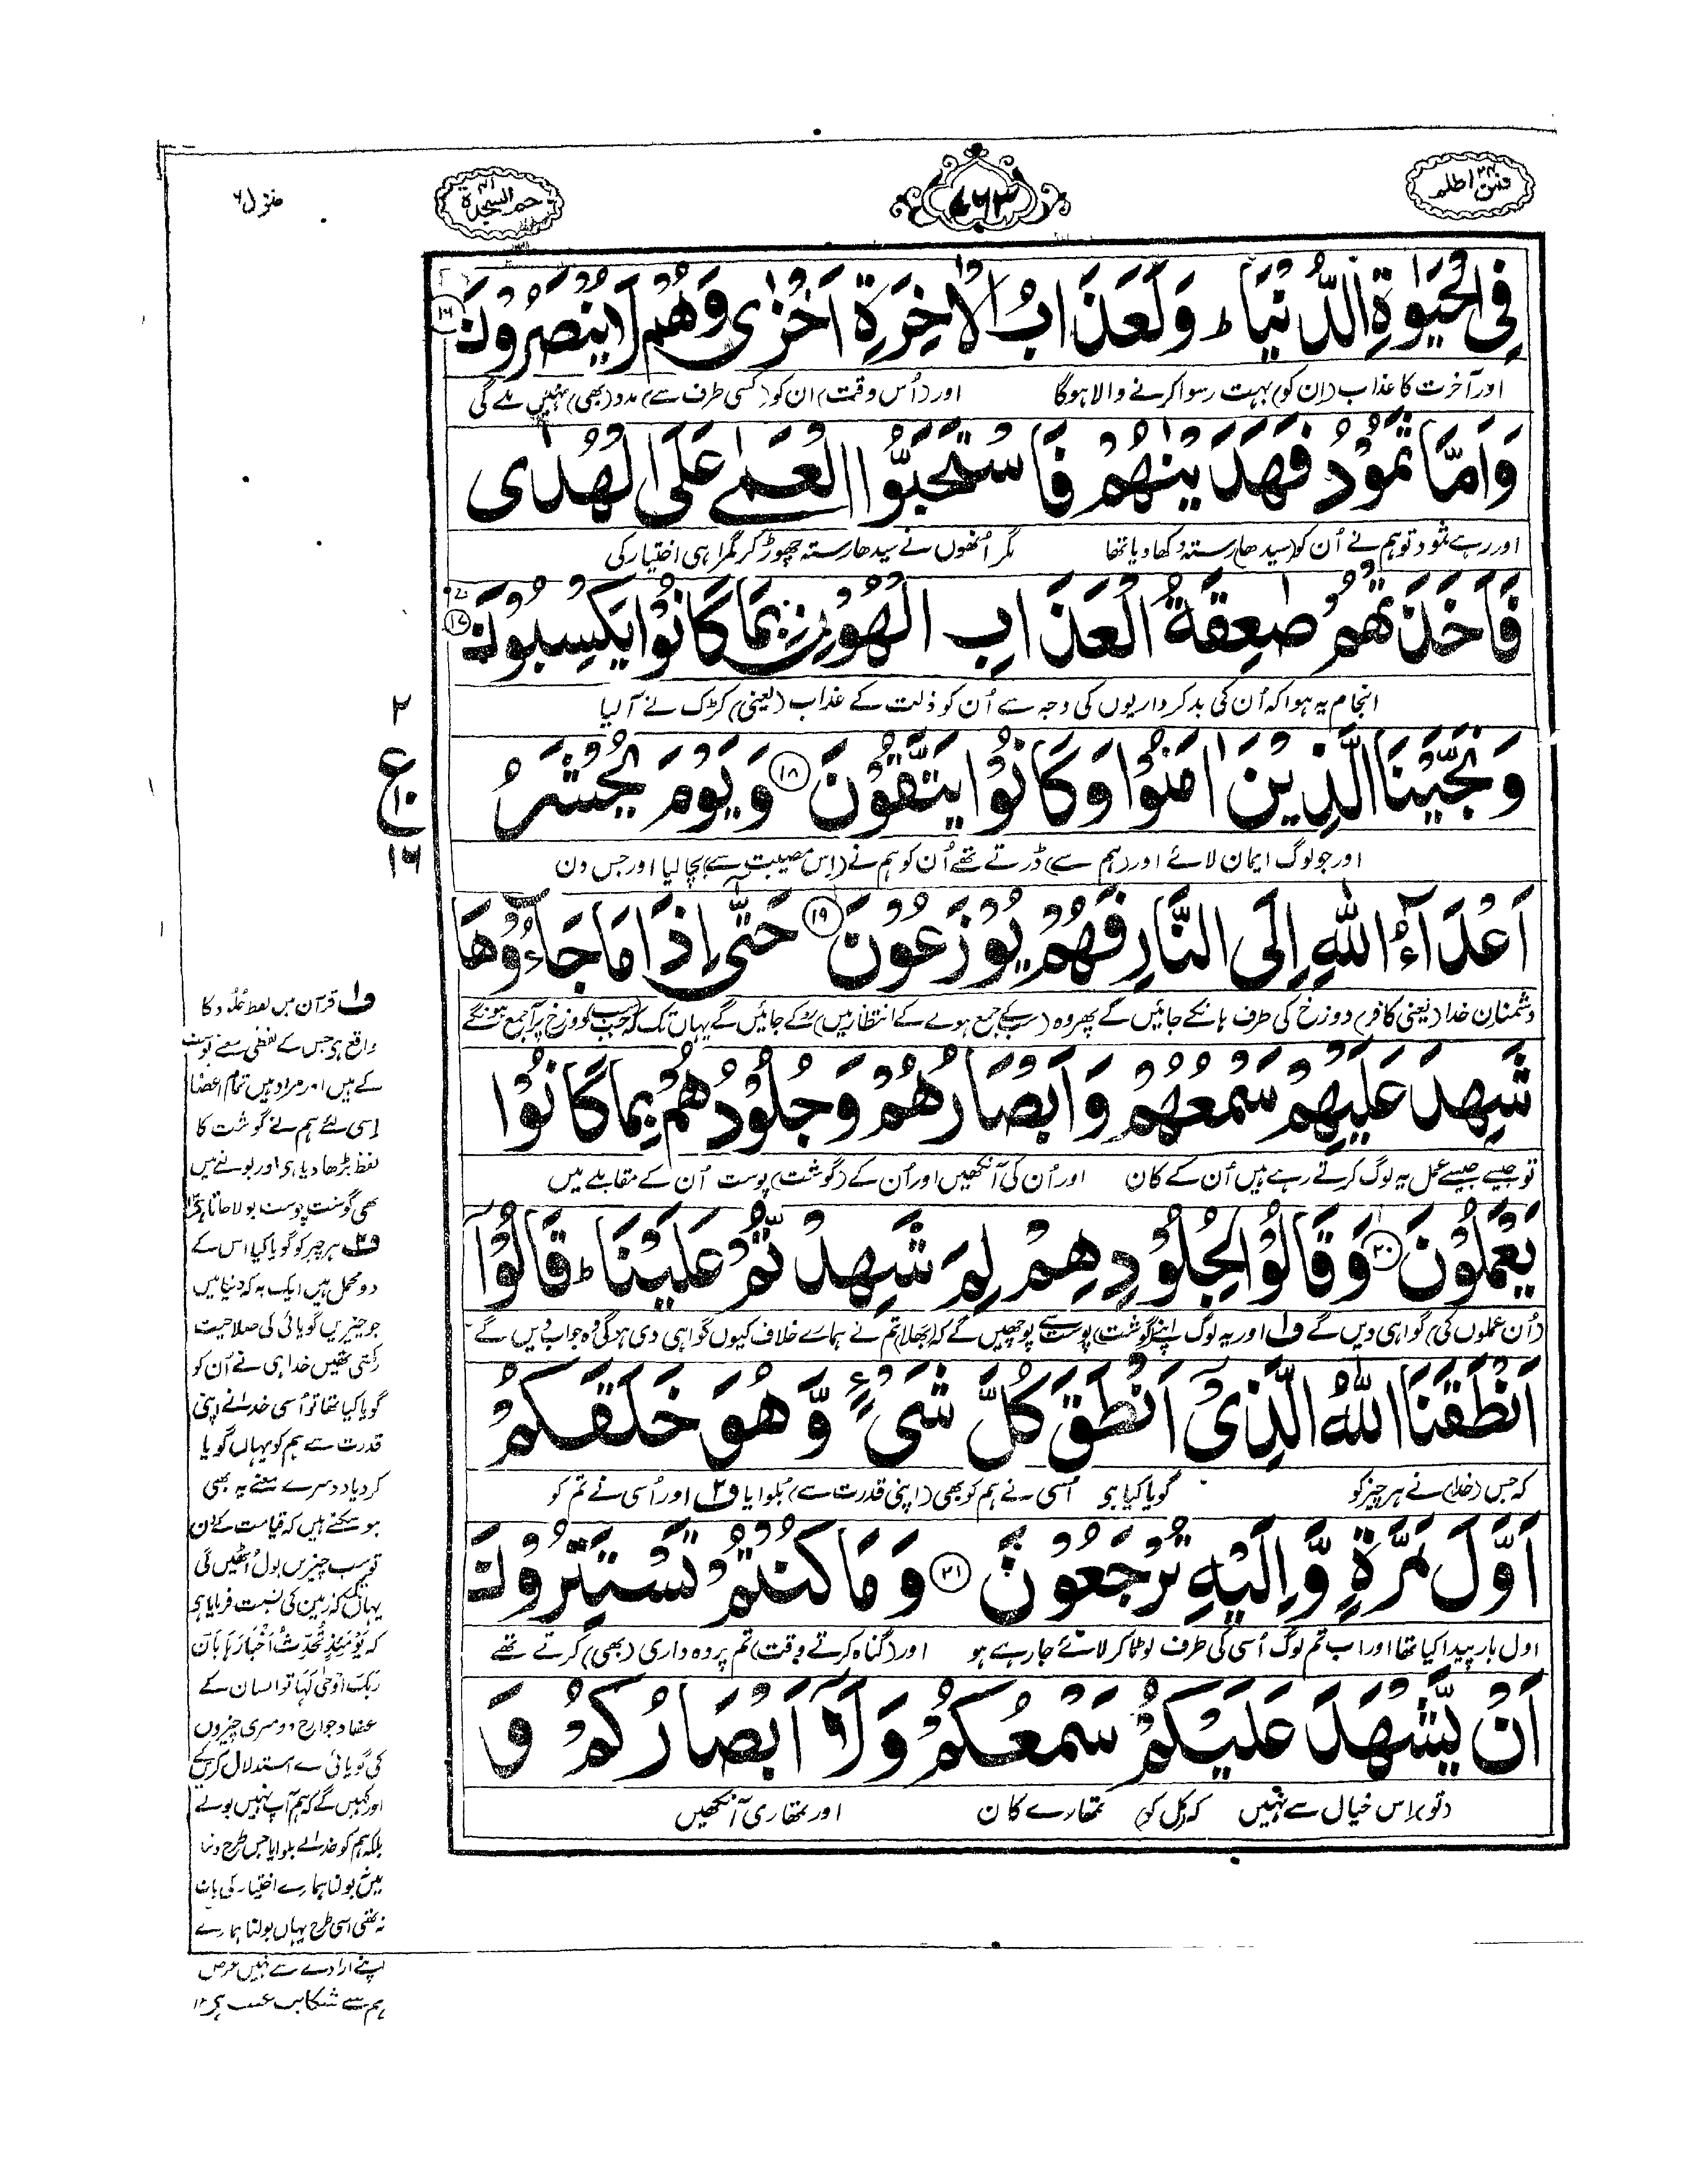 فمن اظلم ۲۴
۷۶۳
حٰم السجدة ۴۱
منزل ۶
فِی الْحَیٰوةِ الدُّنْیَا ؕ وَلَعَذَابُ الْاٰخِرَةِ اَخْزٰی وَهُمْ لَا یُنْصَرُوْنَ ۱۶
اور آخرت کا عذاب (ان کو) بہت رسوا کرنے والا ہوگا اور (اُس وقت) ان کو (کسی طرف سے) مدد (بھی) نہیں ملے گی
وَاَمَّا ثَمُوْدُ فَهَدَیْنٰهُمْ فَاسْتَحَبُّوا الْعَمٰی عَلَی الْهُدٰی
اور رہے ثمود تو ہم نے اُن کو (سیدھا) رستہ دکھا دیا تھا مگر اُنھوں نے سیدھا رستہ چھوڑ کر گمراہی اختیار کی
فَاَخَذَتْهُمْ صٰعِقَةُ الْعَذَابِ الْهُوْنِ بِمَا كَانُوْا یَكْسِبُوْنَ ۱۷
انجام یہ ہوا کہ اُن کی بدکرداریوں کی وجہ سے اُن کو ذلت کے عذاب (یعنی) کڑک نے آ لیا
وَنَجَّیْنَا الَّذِیْنَ اٰمَنُوْا وَكَانُوْا یَتَّقُوْنَ ۱۸ وَیَوْمَ یُحْشَرُ
اور جو لوگ ایمان لائے اور (ہم سے) ڈرتے تھے اُن کو ہم نے (اس مصیبت سے) بچا لیا اور جس دن
۲
ع
۱۰
۱۶
اَعْدَآءُ اللّٰهِ اِلَی النَّارِ فَهُمْ یُوْزَعُوْنَ ۱۹ حَتّٰۤی اِذَا مَا جَآءُوْهَا
دشمنانِ خدا (یعنی کافر) دوزخ کی طرف ہانکے جائیں گے پھر وہ (سب کے جمع ہونے کے انتظار میں) روکے جائیں گے یہاں تک کہ جب (سب) دوزخ پر آجمع ہونگے
شَهِدَ عَلَیْهِمْ سَمْعُهُمْ وَاَبْصَارُهُمْ وَجُلُوْدُهُمْ بِمَا كَانُوْا
تو جیسے جیسے عمل یہ لوگ کرتے رہے ہیں اُن کے کان اور اُن کی آنکھیں اور اُن کے (گوشت) پوست اُن کے مقابلے میں
یَعْمَلُوْنَ ۲۰ وَقَالُوْا لِجُلُوْدِهِمْ لِمَ شَهِدْتُّمْ عَلَیْنَا ؕ قَالُوْۤا
(اُن عملوں کی) گواہی دیں گے ف۱ اور یہ لوگ اپنے (گوشت) پوست سے پوچھیں گے کہ (بھلا) تم نے ہمارے خلاف کیوں گواہی دی ہوگی وہ جواب دیں گے
اَنْطَقَنَا اللّٰهُ الَّذِیْۤ اَنْطَقَ كُلَّ شَیْءٍ وَّهُوَ خَلَقَكُمْ
کہ جس (خدا) نے ہر چیز کو گویا کیا ہی اُسی نے ہم کو بھی (اپنی قدرت سے) بُلوایا ف۲ اور اُسی نے تم کو
اَوَّلَ مَرَّةٍ وَّاِلَیْهِ تُرْجَعُوْنَ ۲۱ وَمَا كُنْتُمْ تَسْتَتِرُوْنَ
اول بار پیدا کیا تھا اور اب تم لوگ اُسی کی طرف لوٹا کر لائے جا رہے ہو اور (گناہ کرتے وقت) تم پردہ داری (بھی) کرتے تھے
اَنْ یَّشْهَدَ عَلَیْكُمْ سَمْعُكُمْ وَلَاۤ اَبْصَارُكُمْ وَ
(تو) اس خیال سے نہیں کہ (کل کو) تمھارے کان اور تمھاری آنکھیں
ف۱ قرآن میں لفظ جُلُود کا
واقع ہی جس کے لفظی معنے پوست
کے ہیں اور مراد ہیں تمام اعضا
اِسی لئے ہم نے گوشت کا
لفظ بڑھا دیا ہی اور بولنے میں
بھی گوشت پوست بولا جاتا ہی
ف۲ ہر چیز کو گویا کیا اس کے
دو محمل ہیں ایک یہ کہ دنیا میں
جو چیزیں گویائی کی صلاحیت
رکھتی تھیں خدا ہی نے اُن کو
گویا کیا تھا تو اُسی خدا نے اپنی
قدرت سے ہم کو یہاں گویا
کر دیا دوسرے معنے یہ بھی
ہو سکتے ہیں کہ قیامت کے دن
تو سب چیزیں بول اُٹھیں گی
یہاں تک کہ زمین کی نسبت فرمایا ہی
کہ یَوْمَئِذٍ تُحَدِّثُ اَخْبَارَهَا بِاَنَّ
رَبَّكَ اَوْحٰی لَهَا تو انسان کے
اعضا و جوارح دوسری چیزوں
کی گویائی سے استدلال کریں گے
اور کہیں گے کہ ہم آپ نہیں بولتے
بلکہ ہم کو خدا نے بلوایا جس طرح دنیا
میں بولنا ہمارے اختیار کی بات
نہ تھی اسی طرح یہاں بولنا ہمارے
اپنے ارادے سے نہیں غرض
ہم سے شکایت عبث ہی ۱۲